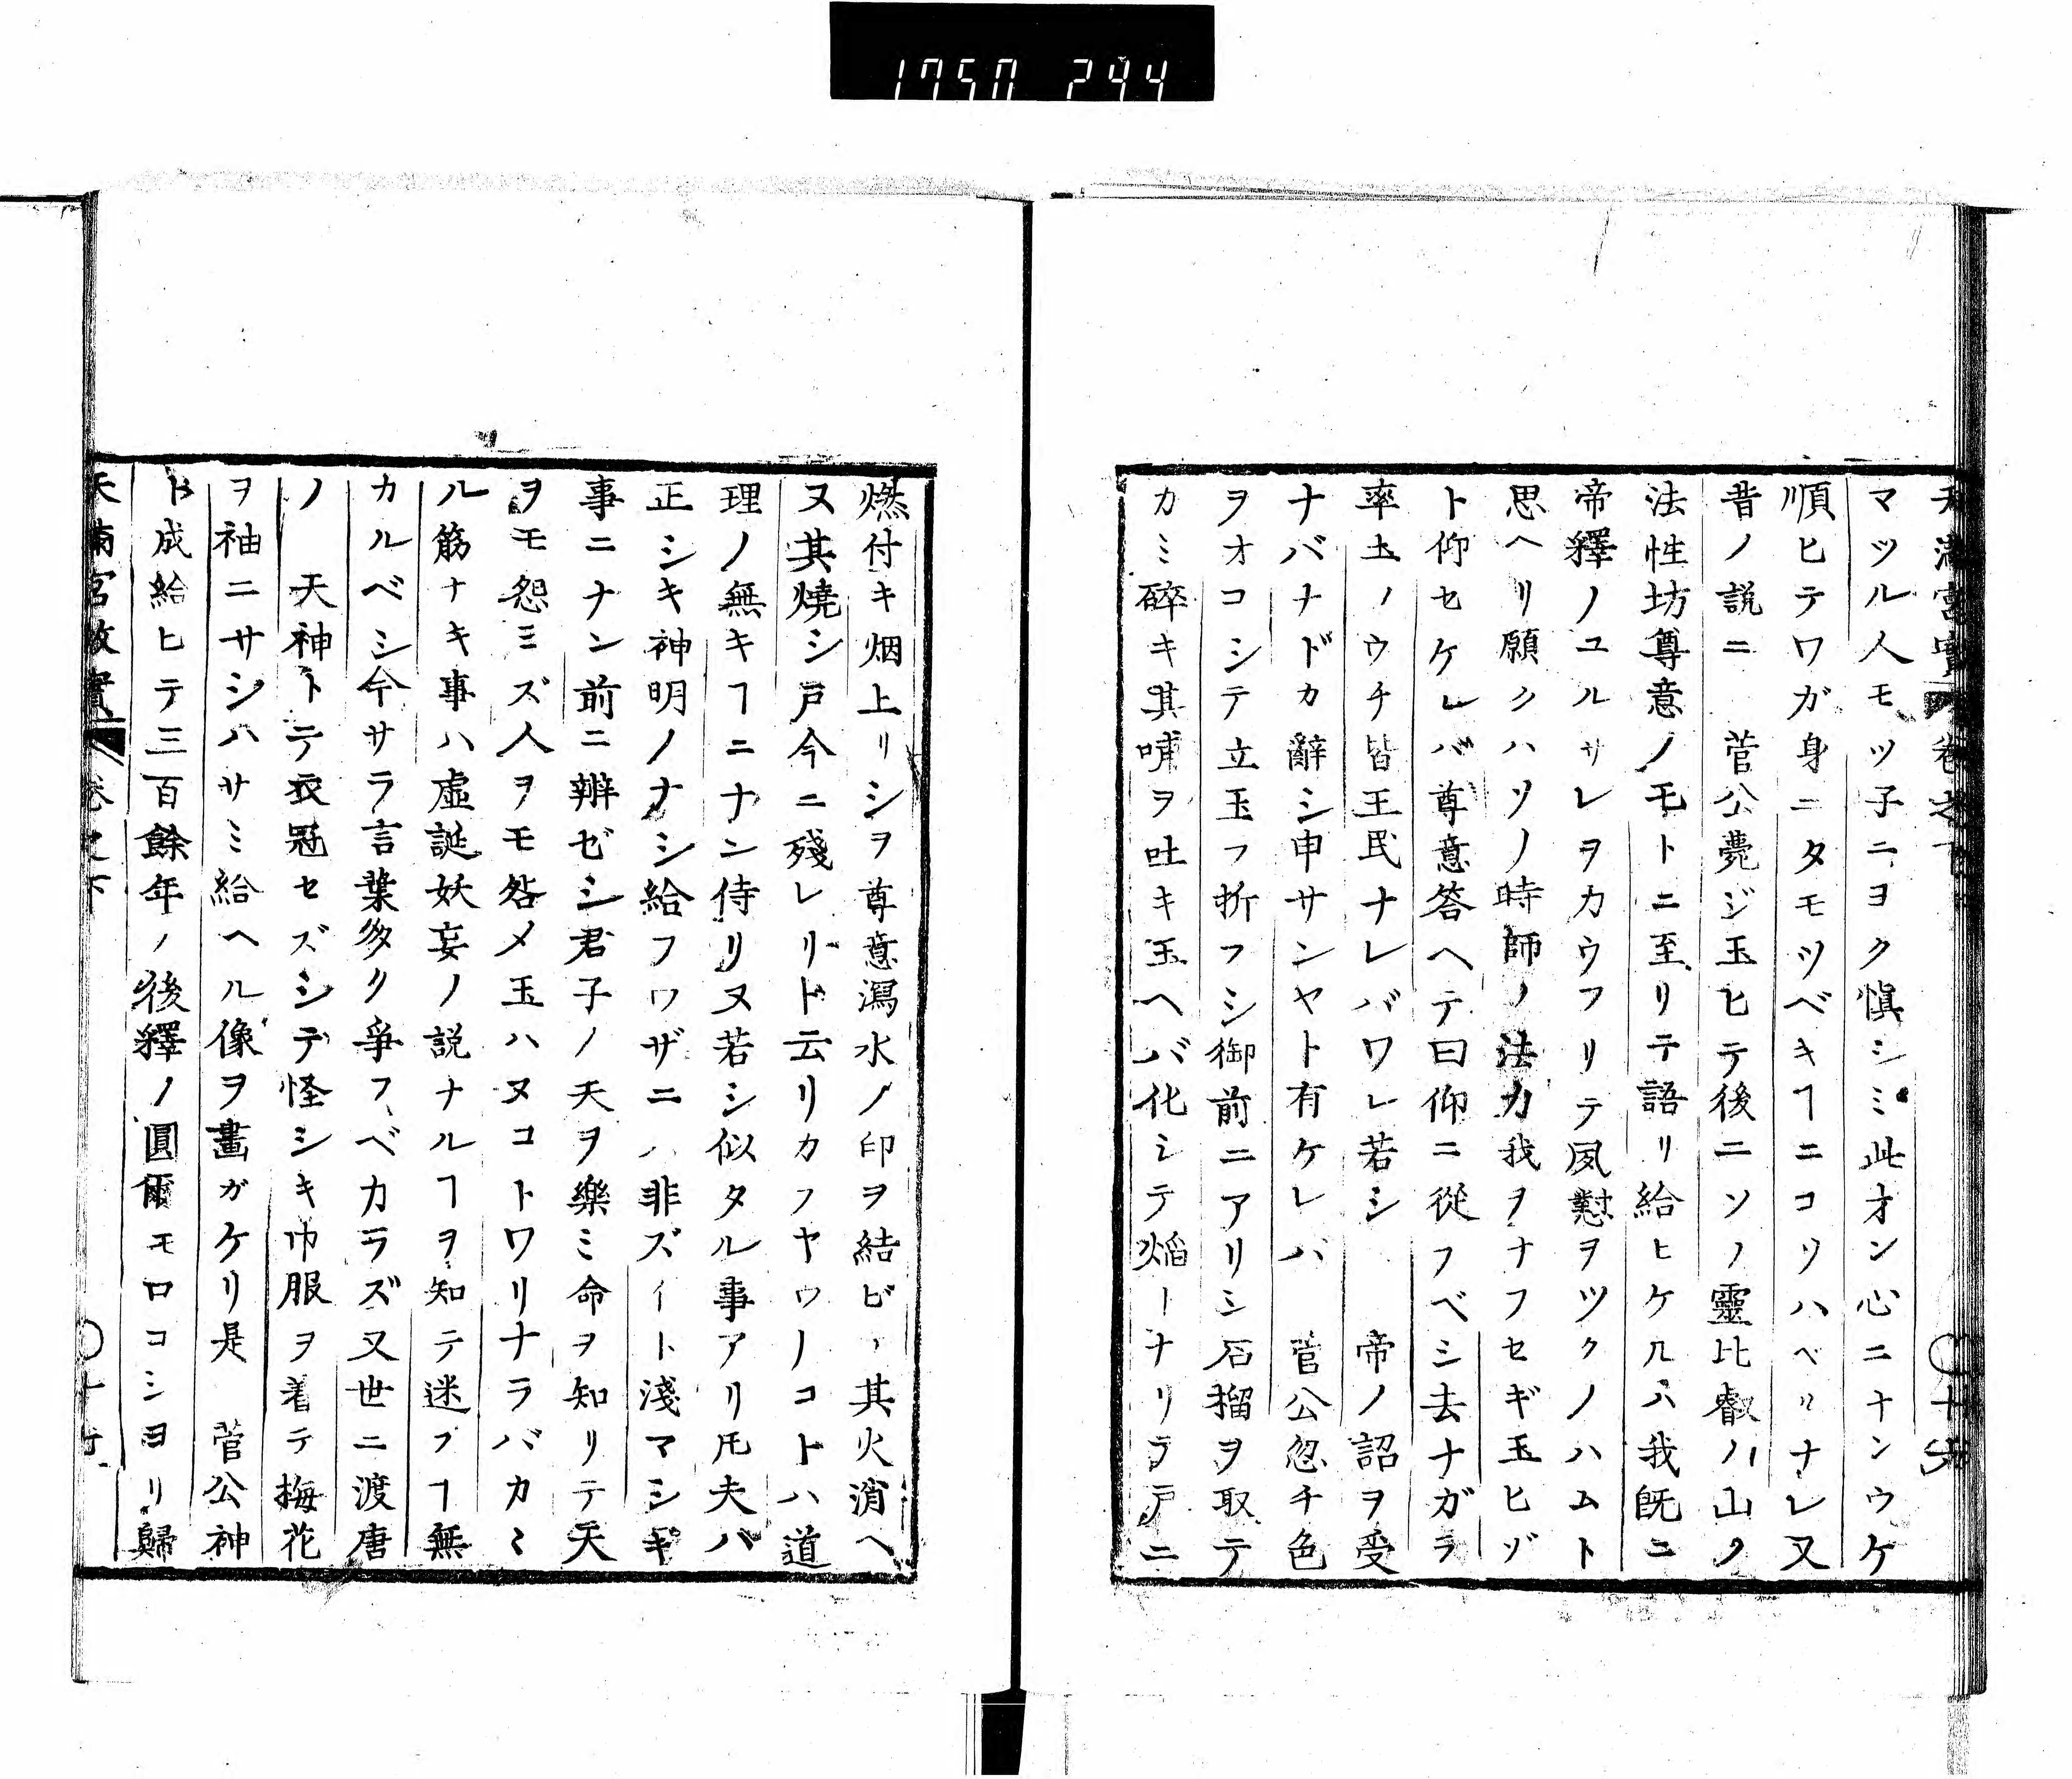 1750 244
天満宮實 卷之下 ○十
マツル人モツ子ニヨク愼シミ此オン心ニナンウケ
順ヒテワガ身ニタモツベキヿニコソハベリナレ又
昔ノ説ニ 菅公薨ジ玉ヒテ後ニソノ靈比叡ノ山ノ
法性坊尊意ノモトニ至リテ語リ給ヒケルハ我既ニ
帝釋ノユルサレヲカウフリテ夙懟ヲツクノハムト
思ヘリ願クハソノ時師ノ法力我ヲナフセギ玉ヒゾ
ト仰セケレバ尊意答ヘテ曰仰ニ從フベシ去ナガラ
率土ノウチ皆王民ナレバワレ若シ 帝ノ詔ヲ受
ナバナドカ辭シ申サンヤト有ケレバ 菅公忽チ色
ヲオコシテ立玉フ折フシ御前ニアリシ石榴ヲ取テ
カミ碎キ其哺ヲ吐キ玉ヘバ化シテ焔トナリテ戸ニ
燃付キ烟上リシヲ尊意瀉水ノ印ヲ結ビ其火消ヘ
ヌ其燒シ戸今ニ殘レリト云リカフヤウノコトハ道
理ノ無キヿニナン侍リヌ若シ似タル事アリトモ夫バ
正シキ神明ノナシ給フワザニハ非ズイト淺マシギ
事ニナン前ニ辨ゼシ君子ノ天ヲ樂ミ命ヲ知リテ天
ヲモ怨ミズ人ヲモ咎メ玉ハヌコトワリナラバカヽ
ル筋ナキ事ハ虚誕妖妄ノ説ナルヿヲ知テ迷フヿ無
カルベシ今サラ言葉多ク爭フベカラズ又世ニ渡唐
ノ 天神トテ衣冠セズシテ怪シキ巾服ヲ着テ梅花
ヲ袖ニサシハサミ給ヘル像ヲ畫ガケリ是 菅公神
ト成給ヒテ三百餘年ノ後釋ノ圓爾モロコシヨリ歸
天満宮故實 卷之下 ○十